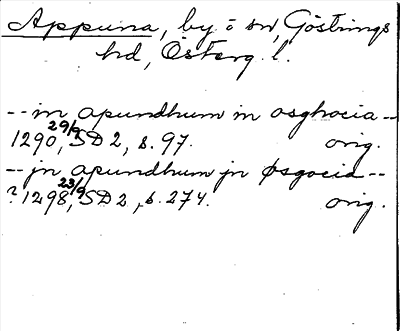 Appuna, by o sn, Göstrings
hd, Österg. l.
-- in apundhum in osghocia --
1290 29/9, SD 2, s. 97. orig.
-- jn apundhum jn øsgocia --
? 1298 23/9, SD 2, s. 274. orig.